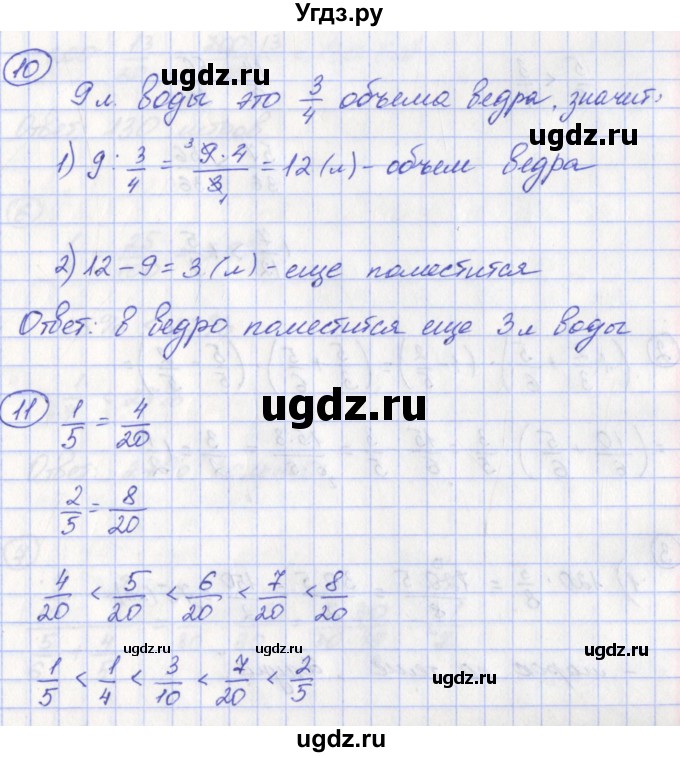 Угдз.ру
10
9 л. воды это 3/4 объема ведра, значит:
1) 9 : 3/4 = 9·4/3 = 12 (л) - объем ведра
3
1
2) 12 - 9 = 3 (л) - еще поместится
Ответ: в ведро поместится еще 3 л воды
11
1/5 = 4/20
2/5 = 8/20
4/20 < 5/20 < 6/20 < 7/20 < 8/20
1/5 < 1/4 < 3/10 < 7/20 < 2/5
ugdz.ru
ugdz.ru
ugdz.ru
ugdz.ru
ugdz.ru
ugdz.ru
ugdz.ru
ugdz.ru